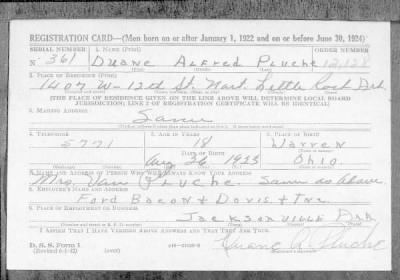 REGISTRATION CARD—(Men born on or after January 1, 1922 and on or before June 30, 1924)
SERIAL NUMBER 1. NAME (Print) ORDER NUMBER
N 361 Duane Alfred Pluche 12,128
2. PLACE OF RESIDENCE (Print)
1407 W-12th St. Little Rock Ark
[THE PLACE OF RESIDENCE GIVEN ON THE LINE ABOVE WILL DETERMINE LOCAL BOARD
JURISDICTION; LINE 2 OF REGISTRATION CERTIFICATE WILL BE IDENTICAL]
3. MAILING ADDRESS
Same
4. TELEPHONE 5. AGE IN YEARS 6. PLACE OF BIRTH
5771 18 Warren
DATE OF BIRTH
Aug 26 1923 Ohio
7. NAME AND ADDRESS OF PERSON WHO WILL ALWAYS KNOW YOUR ADDRESS
Mrs. Pluche. Same as above
8. EMPLOYER'S NAME AND ADDRESS
Ford Bacon & Davis & Inc
9. PLACE OF EMPLOYMENT OR BUSINESS
Jacksonville Ark
I AFFIRM THAT I HAVE VERIFIED ABOVE ANSWERS AND THAT THEY ARE TRUE.
D. S. S. Form 1
(Revised 6-1-42)
Duane A. Pluche